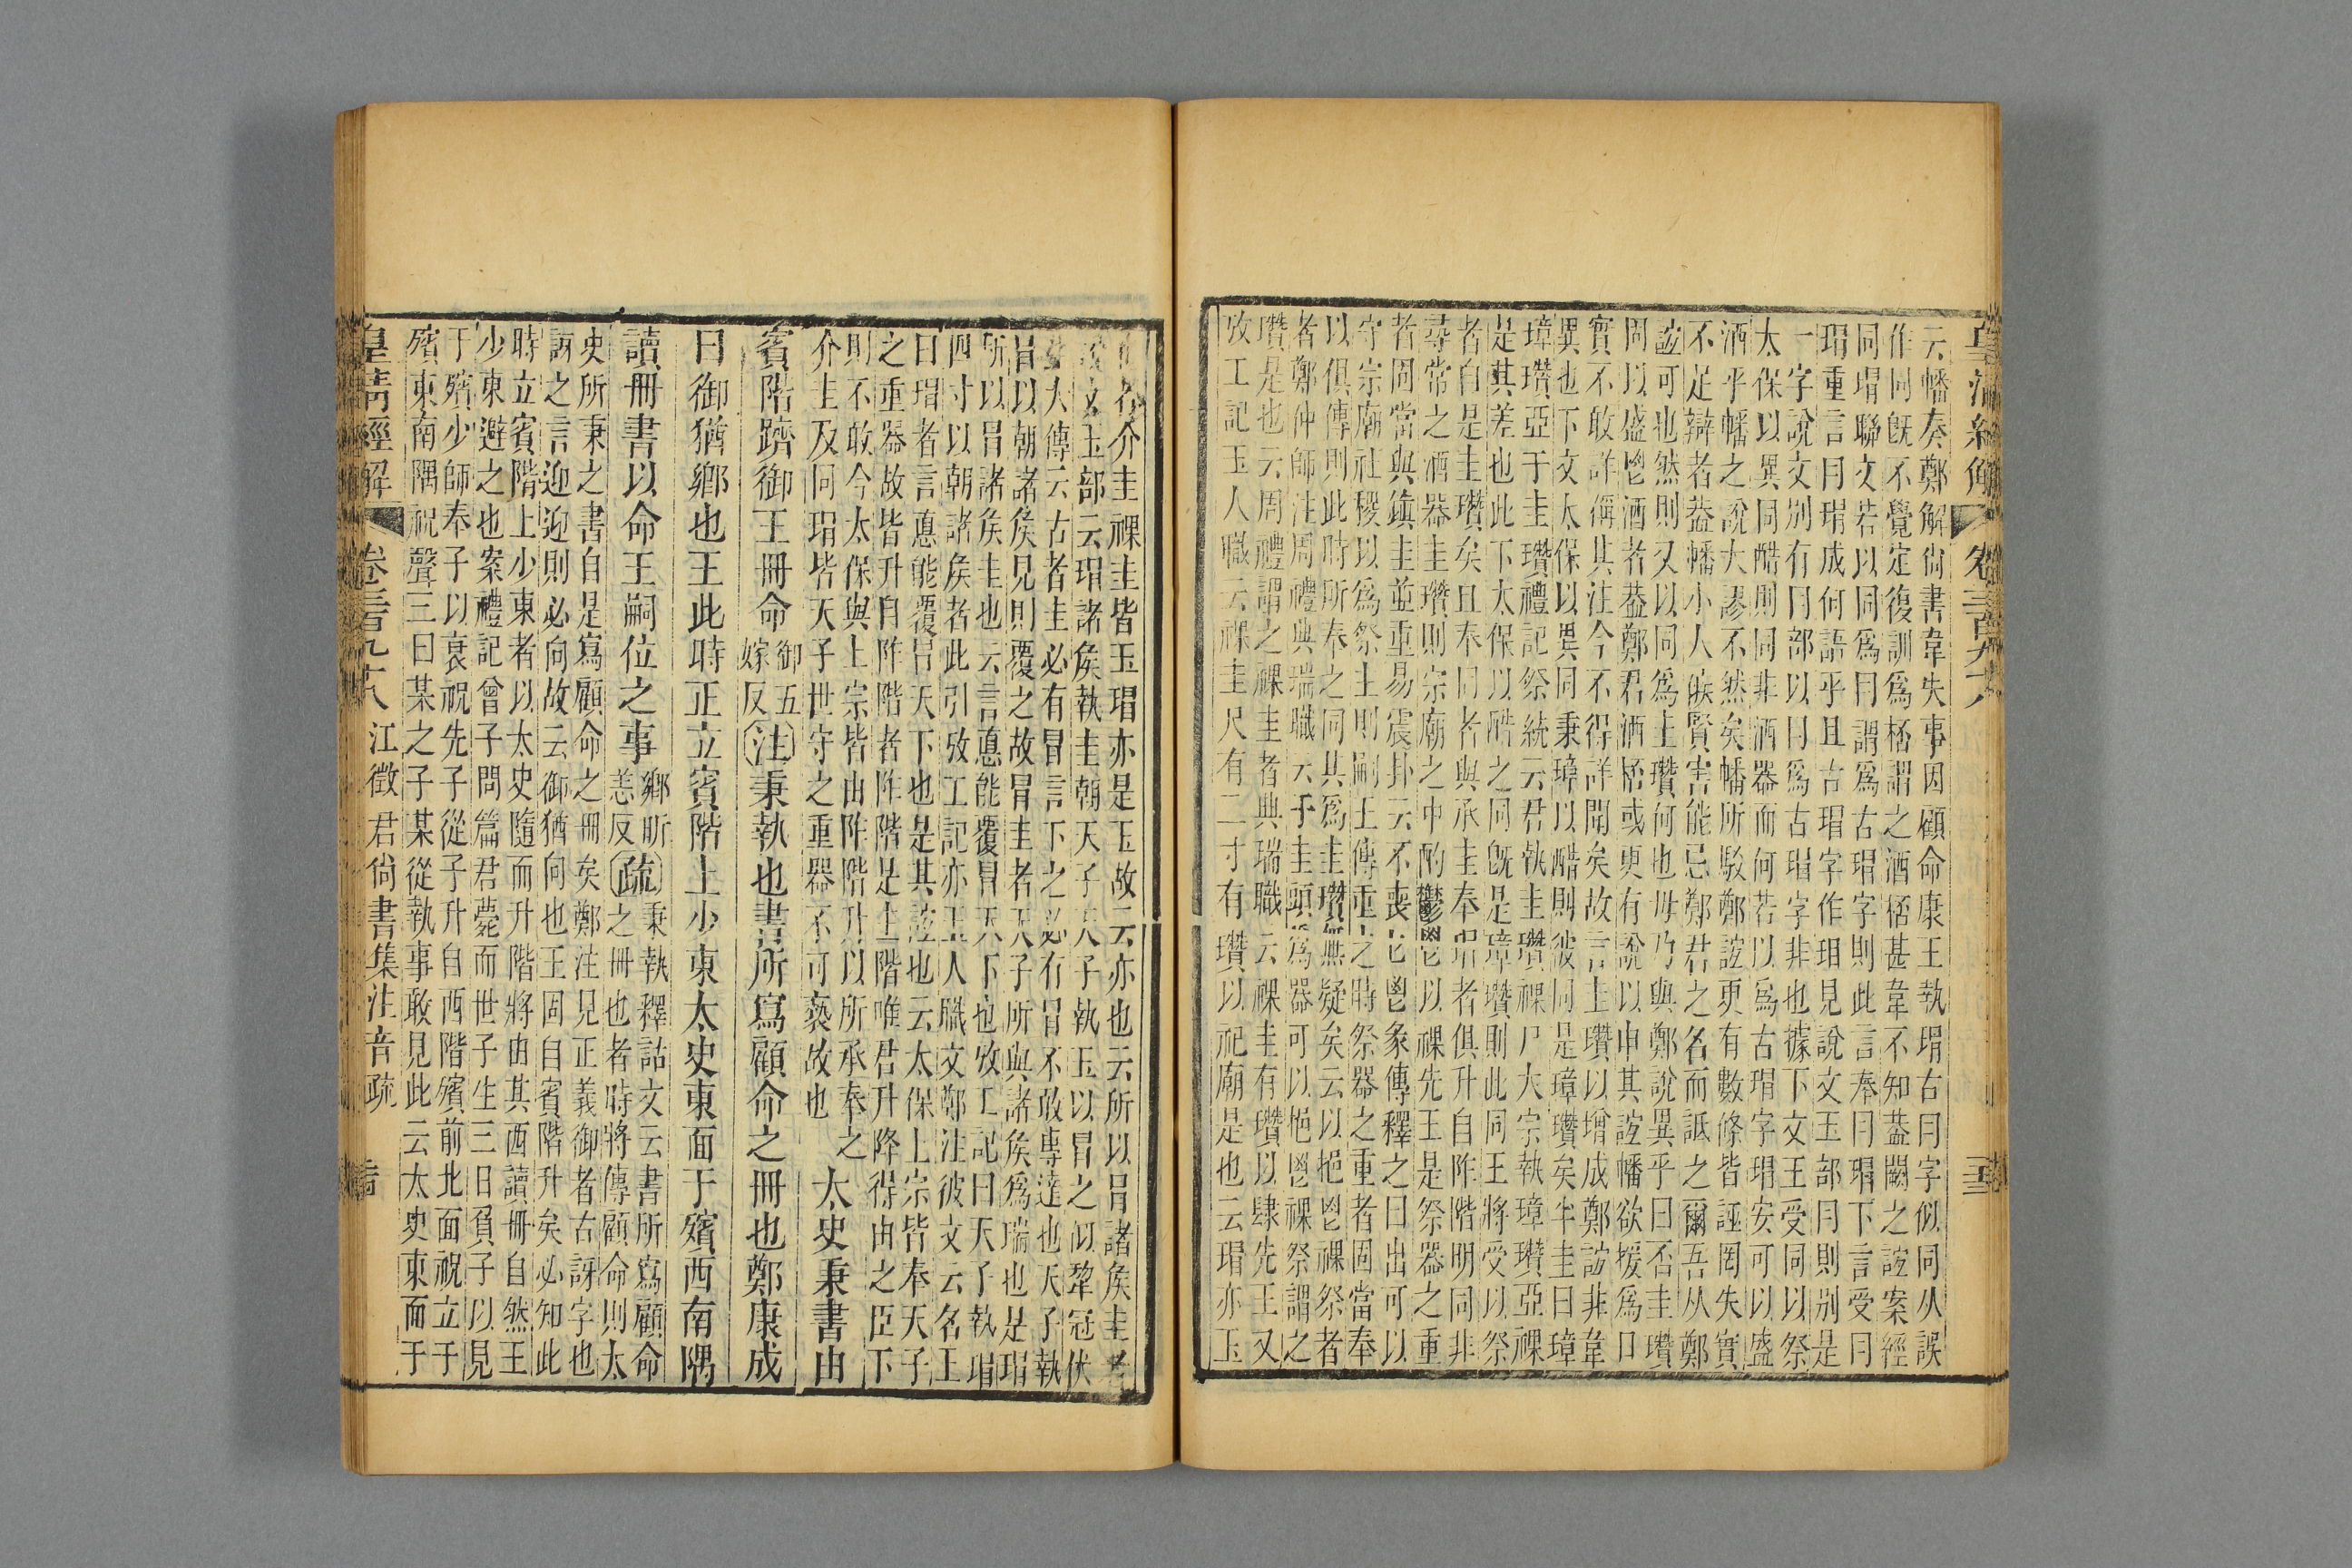 皇清經解 卷三百九十八
云幡奏鄭解尙書韋失事因顧命康王執瑁古冃字似同从誤
作同旣不覺定復訓爲桮謂之酒桮甚韋不知葢闕之誼案經
同瑁聯文若以同爲冃謂爲古瑁字則此言奉冃瑁下言受冃
瑁重言冃瑁成何語乎且古瑁字作玥見說文玉部冃則别是
一字說文别有冃部以冃爲古瑁字非也據下文王受同以祭
太保以異同酷則同非酒器而何若以爲古瑁字瑁安可以盛
酒乎幡之說大謬不然矣幡所駮鄭誼更有數條皆誣罔失實
不足辯者葢幡小人嫉賢害能忌鄭君之名而詆之爾吾从鄭
誼可也然則又以同爲圭瓚何也毋乃與鄭說異乎曰否圭瓚
周以盛鬯酒者葢鄭君酒桮或更有說以申其誼幡欲援爲口
實不敢詳偁其注今不得詳聞矣故言圭瓚以增成鄭誼非韋
異也下文太保以異同秉璋以酷則彼同是璋瓚矣半圭曰璋
璋瓚亞于圭瓚禮記祭統云君執圭瓚祼尸大宗執璋瓚亞祼
是其差也此下太保以酷之同旣是璋瓚則此同王將受以祭
者自是圭瓚矣且奉同者與承圭奉瑁者俱升自阼階明同非
尋常之酒器圭瓚則宗廟之中酌鬱鬯以祼先王是祭器之重
者固當與鎭圭並重易震卦云不喪匕鬯彖傳釋之曰出可以
守宗廟社稷以爲祭主則嗣王傳重之時祭器之重者固當奉
以俱傳則此時所奉之同其爲圭瓚無疑矣云以挹鬯祼祭者
者鄭仲師注周禮典瑞職云于圭頭爲器可以挹鬯祼祭謂之
瓚是也云周禮謂之祼圭者典瑞職云祼圭有瓚以肆先王又
攷工記玉人職云祼圭尺有二寸有瓚以祀廟是也云瑁亦玉
介圭祼圭皆玉瑁亦是玉故云亦也云所以冃諸矦圭者
文玉部云瑁諸矦執圭朝天子天子執玉以冒之似犂冠伏
大傳云古者圭必有冒言下之必有冒不敢專達也天子執
冒以朝諸矦見則覆之故冒圭者天子所與諸矦爲瑞也是瑁
所以冃諸矦圭也云言悳能覆冒天下也攷工記曰天子執瑁
四寸以朝諸矦者此引攷工記亦玉人職文鄭注彼文云名玉
曰瑁者言悳能覆冒天下也是其誼也云太保上宗皆奉天子
之重器故皆升自阼階者阼階是主階唯君升降得由之臣下
則不敢今太保與上宗皆由阼階升以所承奉之
介圭及同瑁皆天子世守之重器不可褻故也 太史秉書由
賓階躋御王冊命御五嫁反注秉執也書所寫顧命之冊也鄭康成
曰御猶鄉也王此時正立賓階上少東太史東面于殯西南隅
讀冊書以命王嗣位之事鄉昕恙反疏秉執釋詁文云書所寫顧命之冊也者時將傳顧命則太
史所秉之書自是寫顧命之冊矣鄭注見正義御者古訝字也
訝之言迎迎則必向故云御猶向也王固自賓階升矣必知此
時立賓階上少東者以太史隨而升階將由其西讀冊自然王
少東避之也案禮記曾子問篇君薨而世子生三日負子以見
于殯少師奉子以衰祝先子從子升自西階殯前北面祝立于
殯東南隅祝聲三曰某之子某從執事敢見此云太史東面于
皇清經解 卷三百九十八 江徵君尙書集注音疏